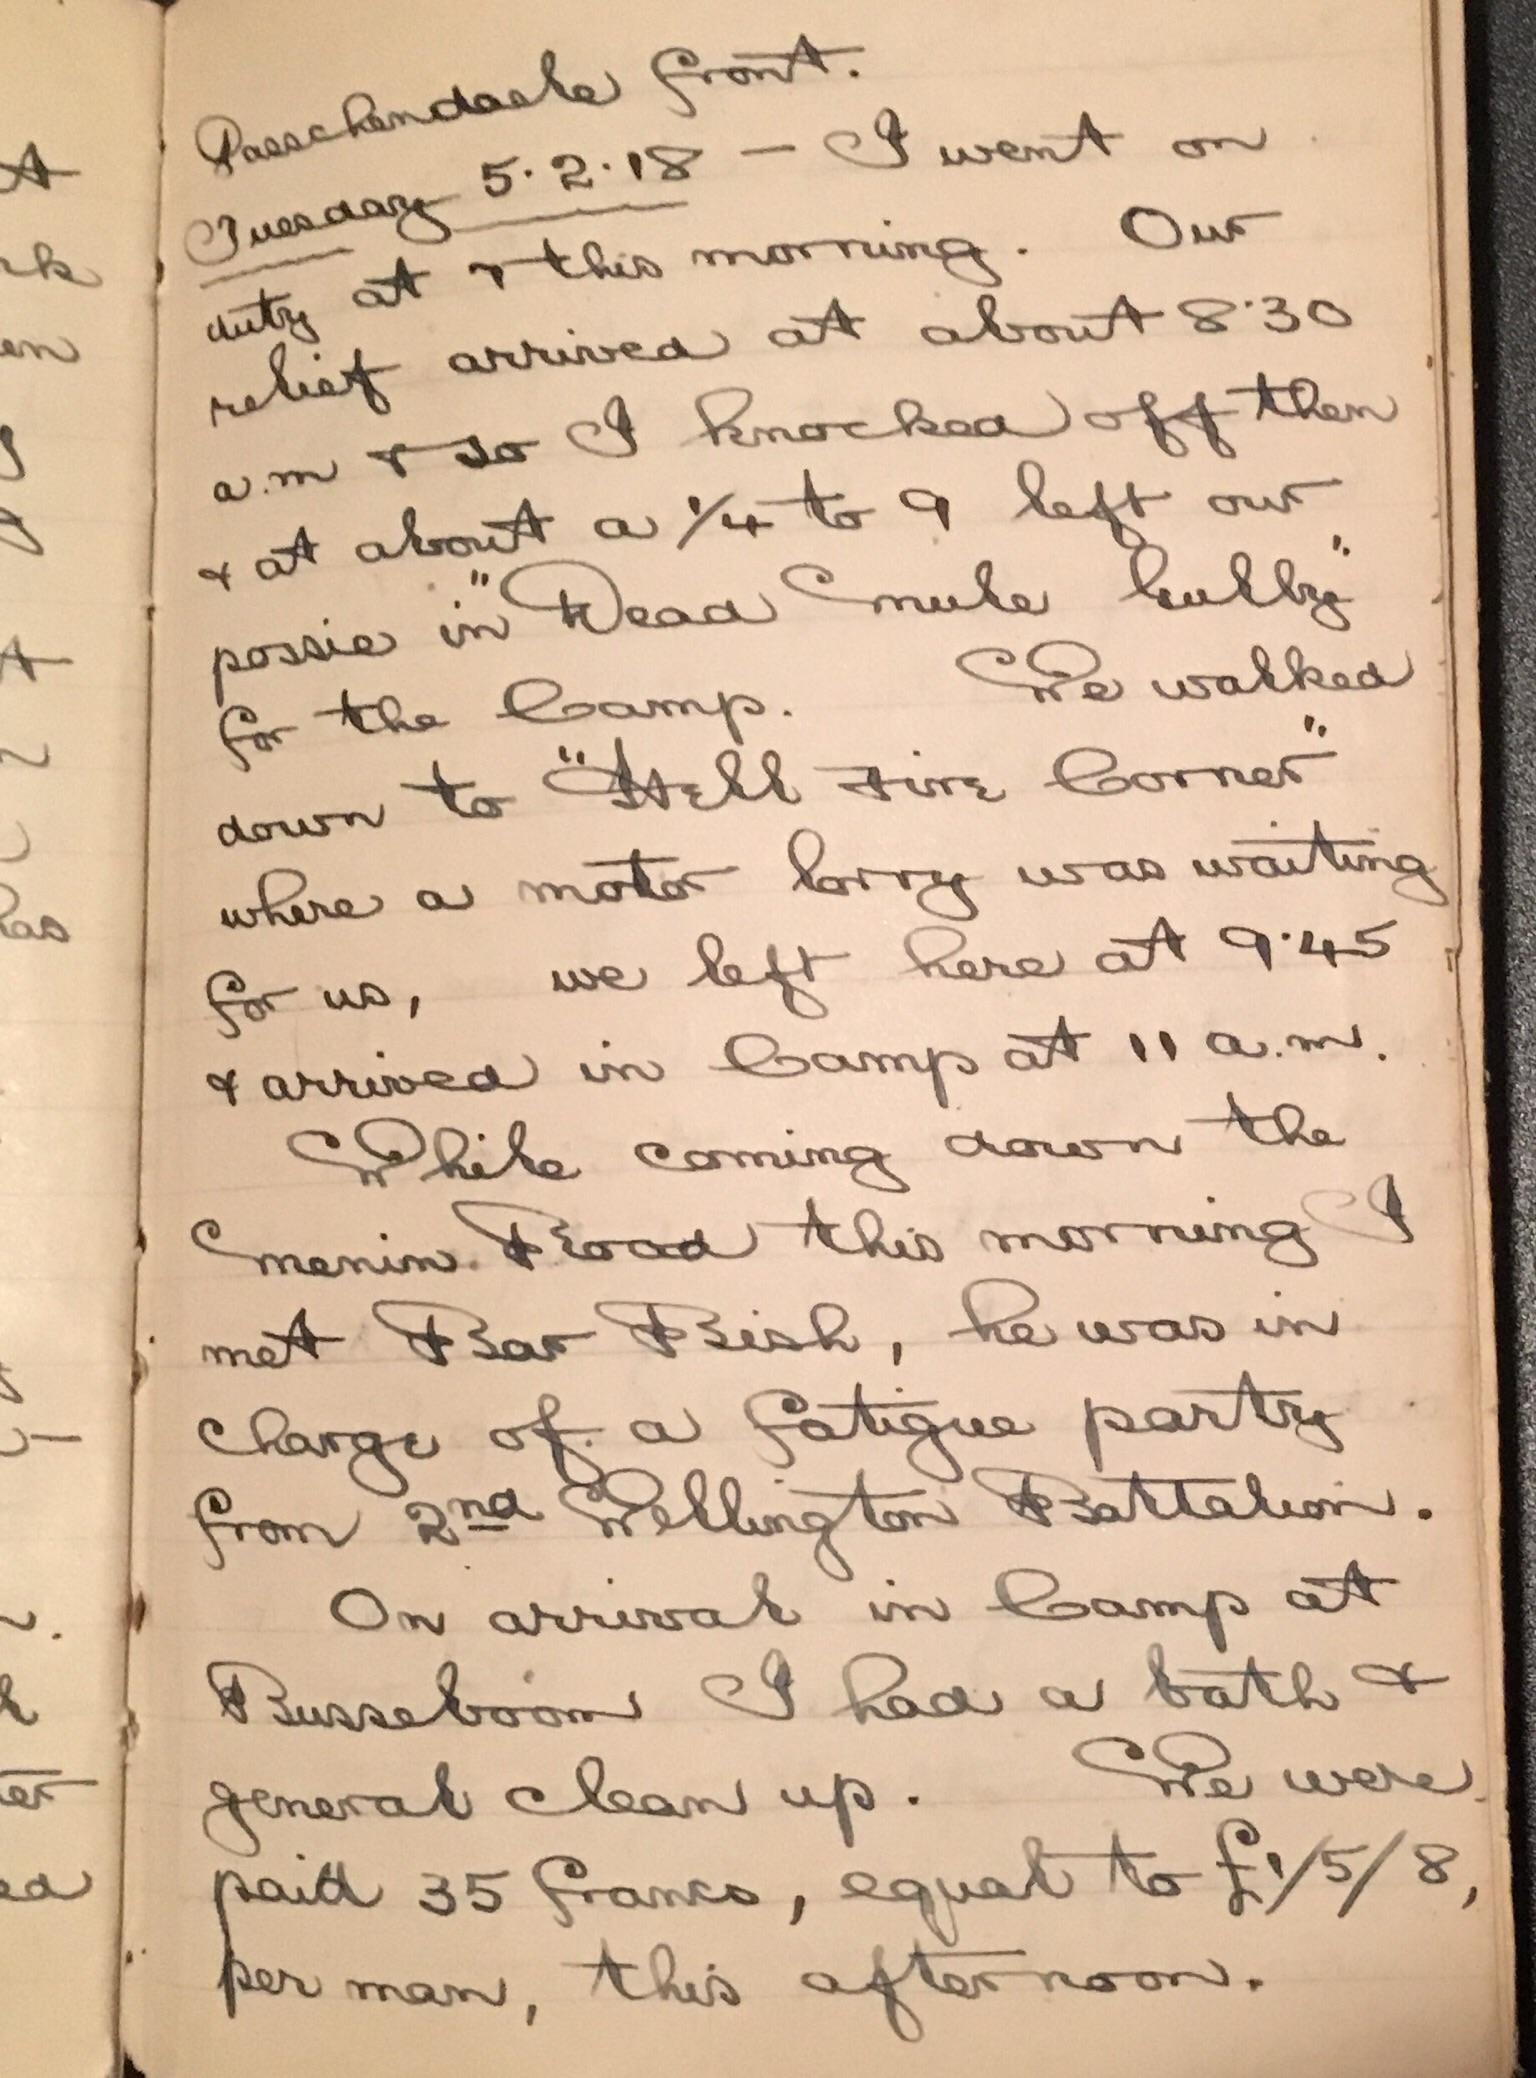 Passchendaele front.
Tuesday 5.2.18 – I went on
duty at 7 this morning. Our
relief arrived at about 8.30
a.m & so I knocked off then
& at about a 1/4 to 9 left our
possie in "Dead Mule Gully"
for the Camp. We walked
down to "Hell Fire Corner"
where a motor lorry was waiting
for us, we left here at 9.45
& arrived in Camp at 11 a.m.
While coming down the
Menin Road this morning I
met Bar Bish, he was in
charge of a fatigue party
from 2nd Wellington Battalion.
On arrival in Camp at
Busseboom I had a bath &
general clean up. We were
paid 35 francs, equal to £1/5/8,
per man, this afternoon.